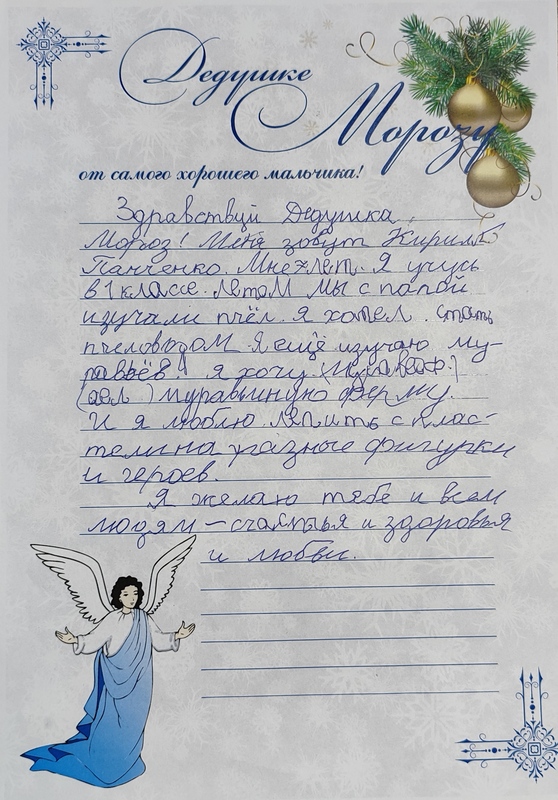 Дедушке
Морозу
от самого хорошего мальчика!
Здравствуй Дедушка
Мороз! Меня зовут Кирилл
Панченко. Мне 7 лет. Я учусь
в 1 классе. Летом мы с папой
изучали пчёл. Я хотел стать
пчеловодом. Я ещё изучаю му-
равьёв! Я хочу
муравьиную ферму.
И я люблю лепить с плас-
телина разные фигурки
и героев.
Я желаю тебе и всем
людям – счастья и здоровья
и любви.